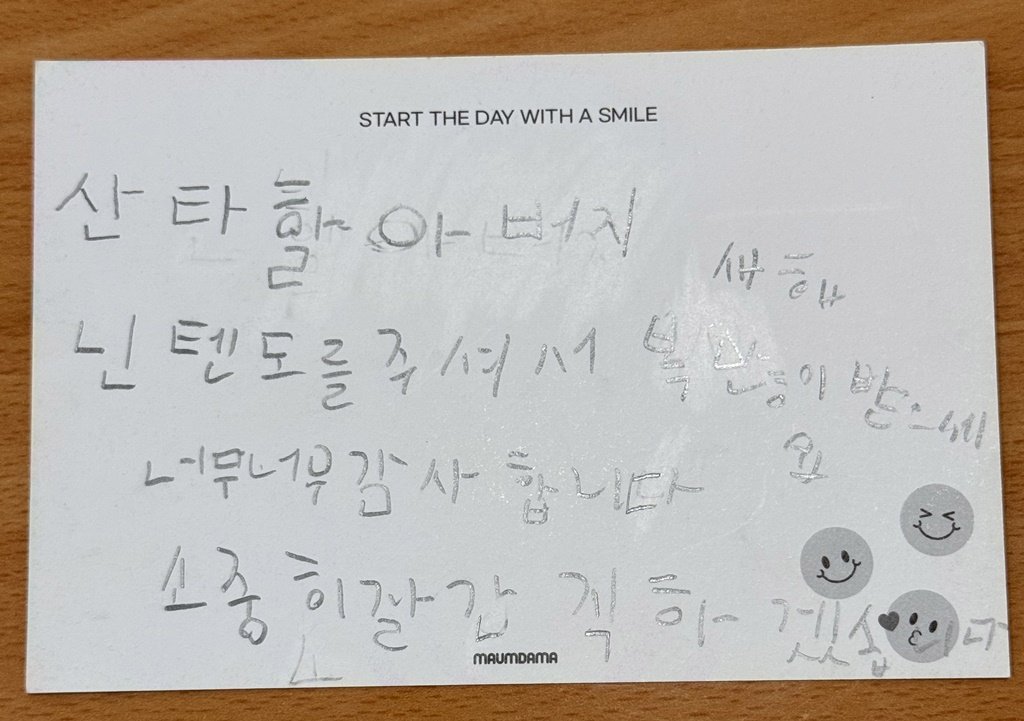 START THE DAY WITH A SMILE
산타할아버지
닌텐도를주셔서
너무너무감사합니다
소중히 간직하겠습니다
새해
복 많이 받으세
요
MAUMDAMA